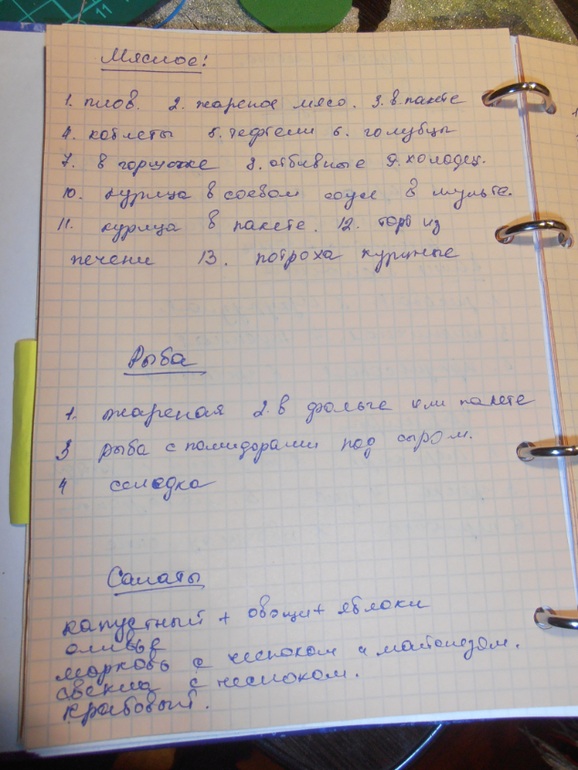 Мясное!
1. плов. 2. жареное мясо. 3. в пакете
4. котлеты 5. тефтели 6. голубцы
7. в горшочке 8. отбивные 9. холодец.
10. курица в соевом соусе в мульте.
11. курица в пакете. 12. торт из
печени 13. потроха куриные
Рыба
1. жареная 2. в фольге или пакете
3 рыба с помидорами под сыром.
4 селедка
Салаты
капустный + овощи + яблоки
оливье
морковь с чесноком и майонезом.
свекла с чесноком.
крабовый.
11